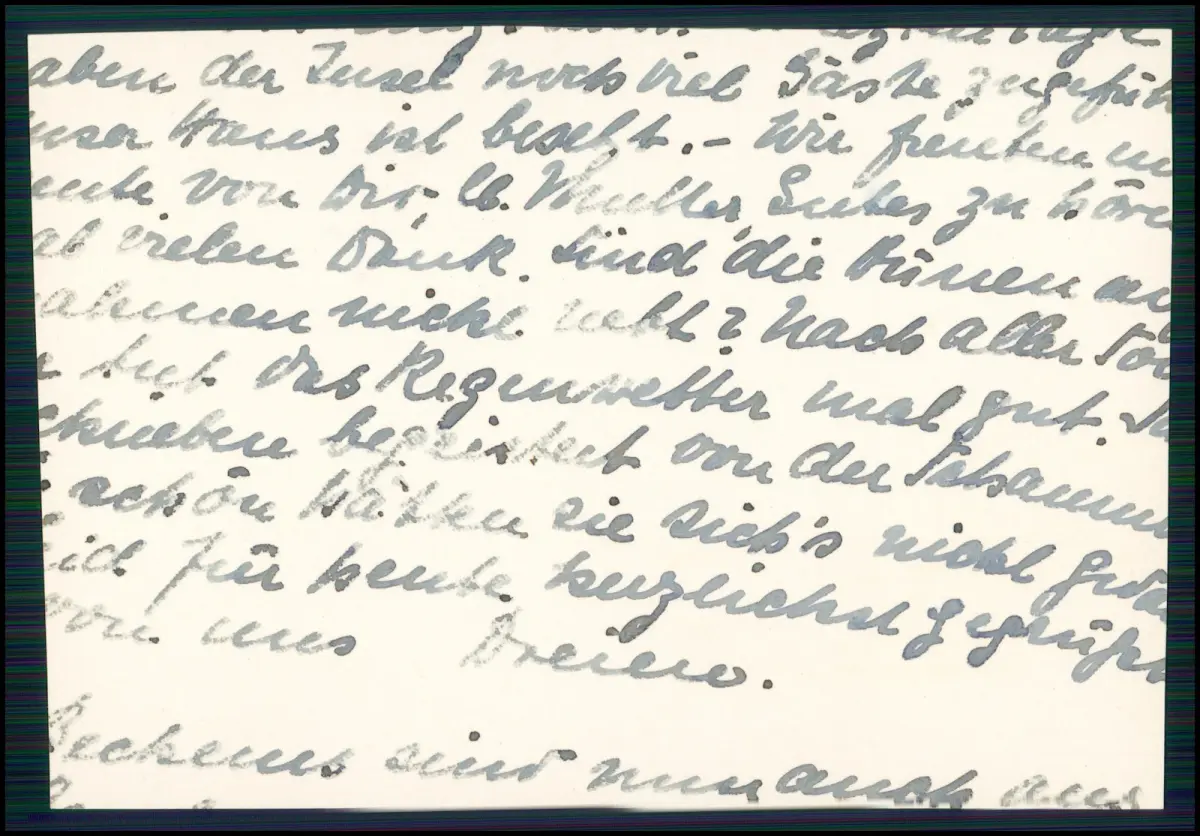 Tage
aben der Insel noch viel Gäste zugefüh
nser Haus ist besetzt. – Wir freuten un
eute von Dir, lb. Mutter, Gutes zu hören
al vielen Dank. Sind die Dünen au
ahmen nicht nett? Nach aller
tut das Regenwetter mal gut.
chrieben begeistert von der
schön hätten sie sich's nicht geda
eid für heute herzlichst gegrüß
von uns Dreien.
sind nun auch aus